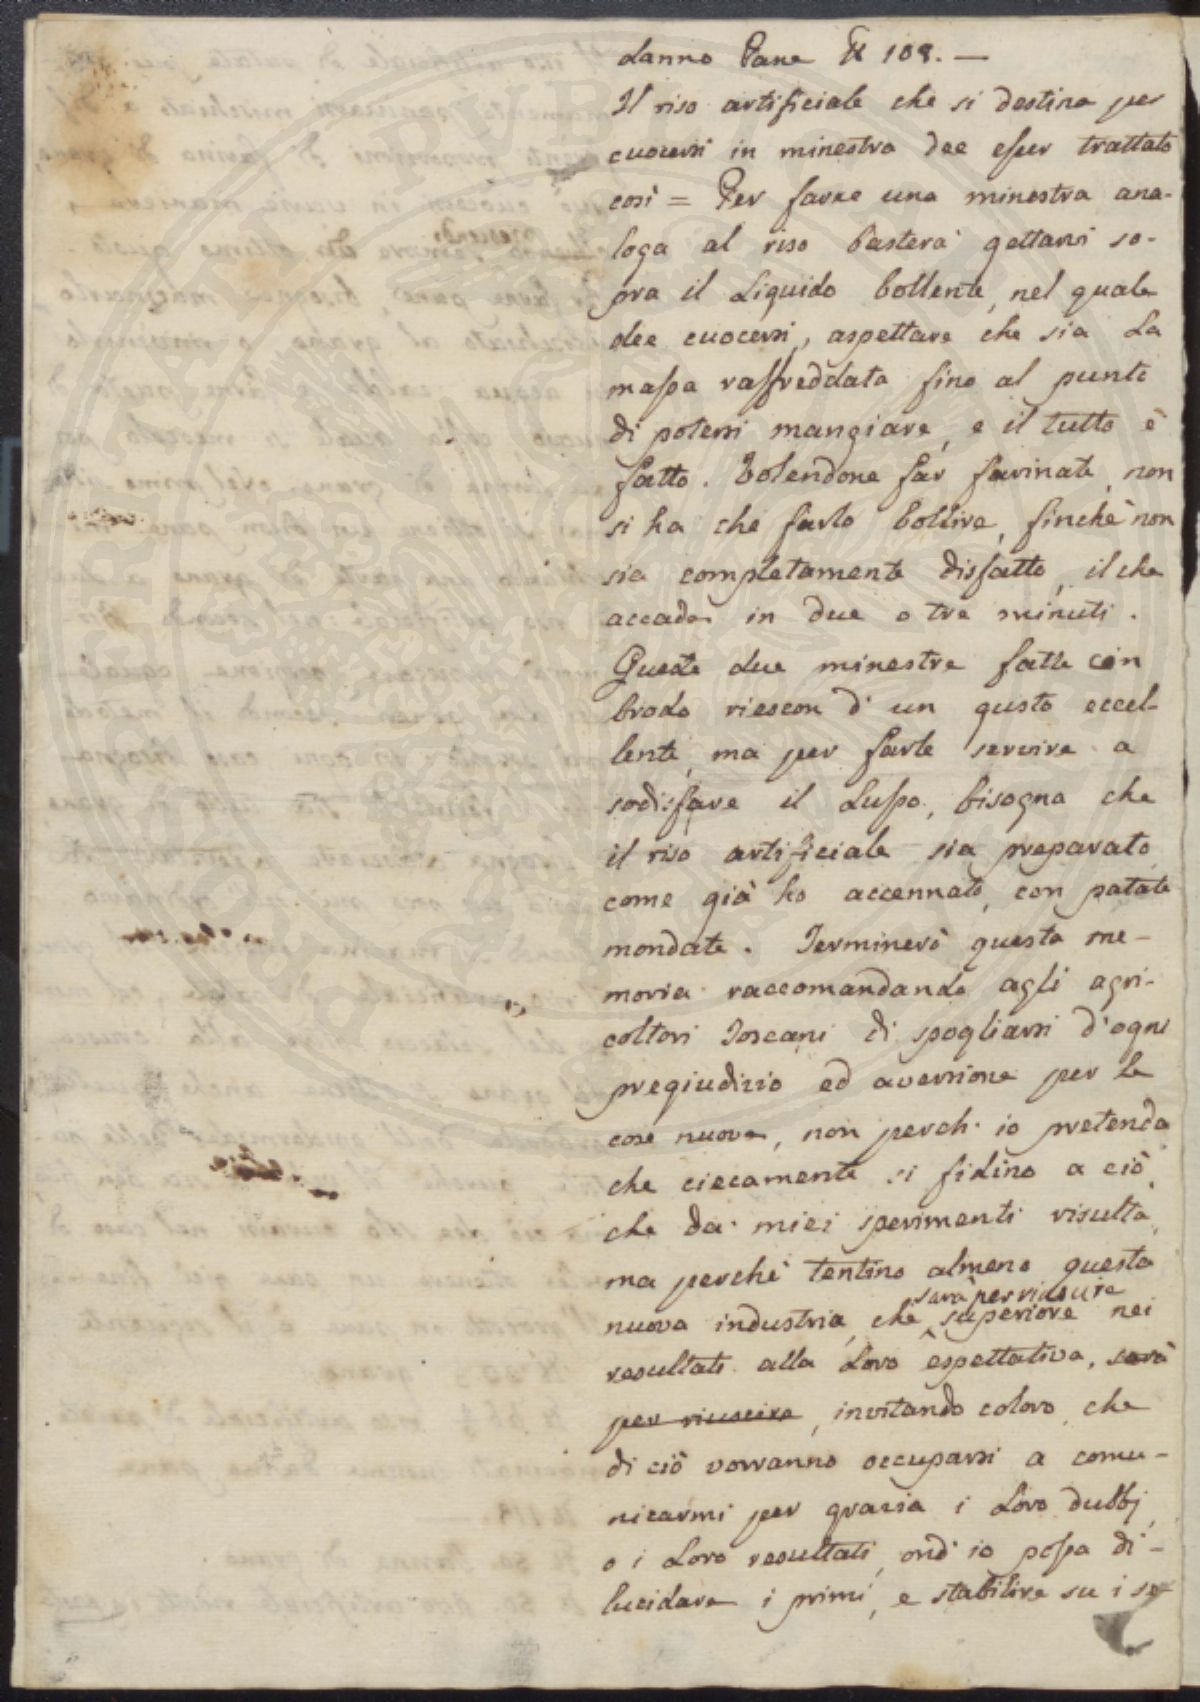 danno Pane ℔ 108. —
Il riso artificiale che si destina per
cuocersi in minestra dee esser trattato
così = Per farne una minestra ana-
loga al riso basterà gettarvi so-
pra il Liquido bollente, nel quale
dee cuocersi, aspettare che sia La
massa raffreddata fino al punto
di potersi mangiare, e il tutto è
fatto. Volendone far farinate, non
si ha che farlo bollire, finchè non
sia completamente disfatto, il che
accade in due o tre minuti.
Queste due minestre fatte con
brodo riescon d'un gusto eccel-
lente, ma per farle servire a
sodisfare il Lusso, bisogna che
il riso artificiale sia preparato,
come già ho accennato, con patate
mondate. Terminerò questa me-
moria raccomandando agli agri-
coltori Toscani di spogliarsi d'ogni
pregiudizio ed aversione per le
cose nuove, non perch' io pretenda
che ciecamente si fidino a ciò,
che da' miei sperimenti risulta,
ma perchè tentino almeno questa
nuova industria, che sarà per riuscire superiore nei
resultati alla Loro espettativa, sarà
per riuscire, invitando coloro, che
di ciò vorranno occuparsi a comu-
nicarmi per grazia i Loro dubbj,
o i Loro resultati, ond' io possa di-
lucidare i primi, e stabilire su i se-